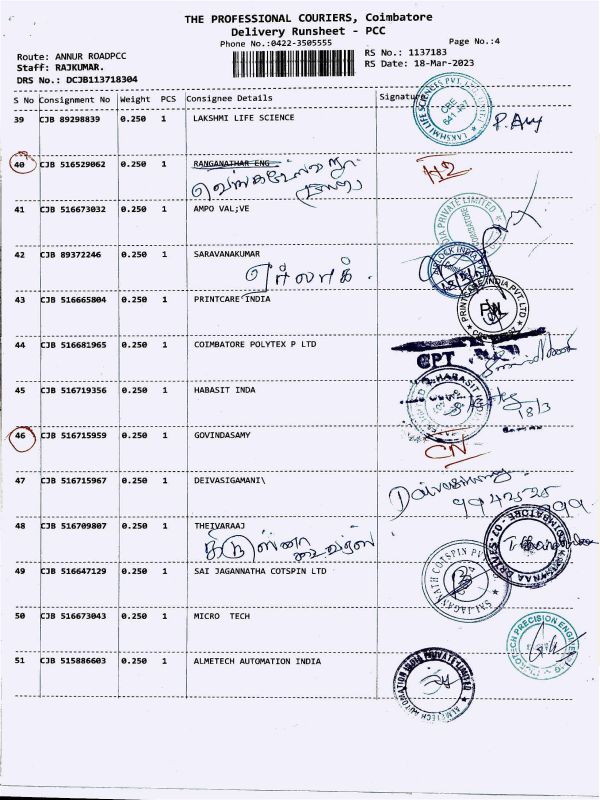 THE PROFESSIONAL COURIERS, Coimbatore
Delivery Runsheet - PCC
Phone No.:0422-3505555
Page No.:4
Route: ANNUR ROADPCC
RS No.: 1137183
Staff: RAJKUMAR.
RS Date: 18-Mar-2023
DRS No.: DCJB113718304
S No Consignment No Weight PCS Consignee Details Signature
39 CJB 89298839 0.250 1 LAKSHMI LIFE SCIENCE
40 CJB 516529062 0.250 1 RANGANATHAR ENG H2
41 CJB 516673032 0.250 1 AMPO VAL;VE
42 CJB 89372246 0.250 1 SARAVANAKUMAR
43 CJB 516665804 0.250 1 PRINTCARE INDIA
44 CJB 516681965 0.250 1 COIMBATORE POLYTEX P LTD
CPT
45 CJB 516719356 0.250 1 HABASIT INDA
18/3
46 CJB 516715959 0.250 1 GOVINDSAMY
CN
47 CJB 516715967 0.250 1 DEIVASIGAMANI\
48 CJB 516709807 0.250 1 THEIVARAAJ
49 CJB 516647129 0.250 1 SAI JAGANNATHA COTSPIN LTD
50 CJB 516673043 0.250 1 MICRO TECH
51 CJB 515886603 0.250 1 ALMETECH AUTOMATION INDIA